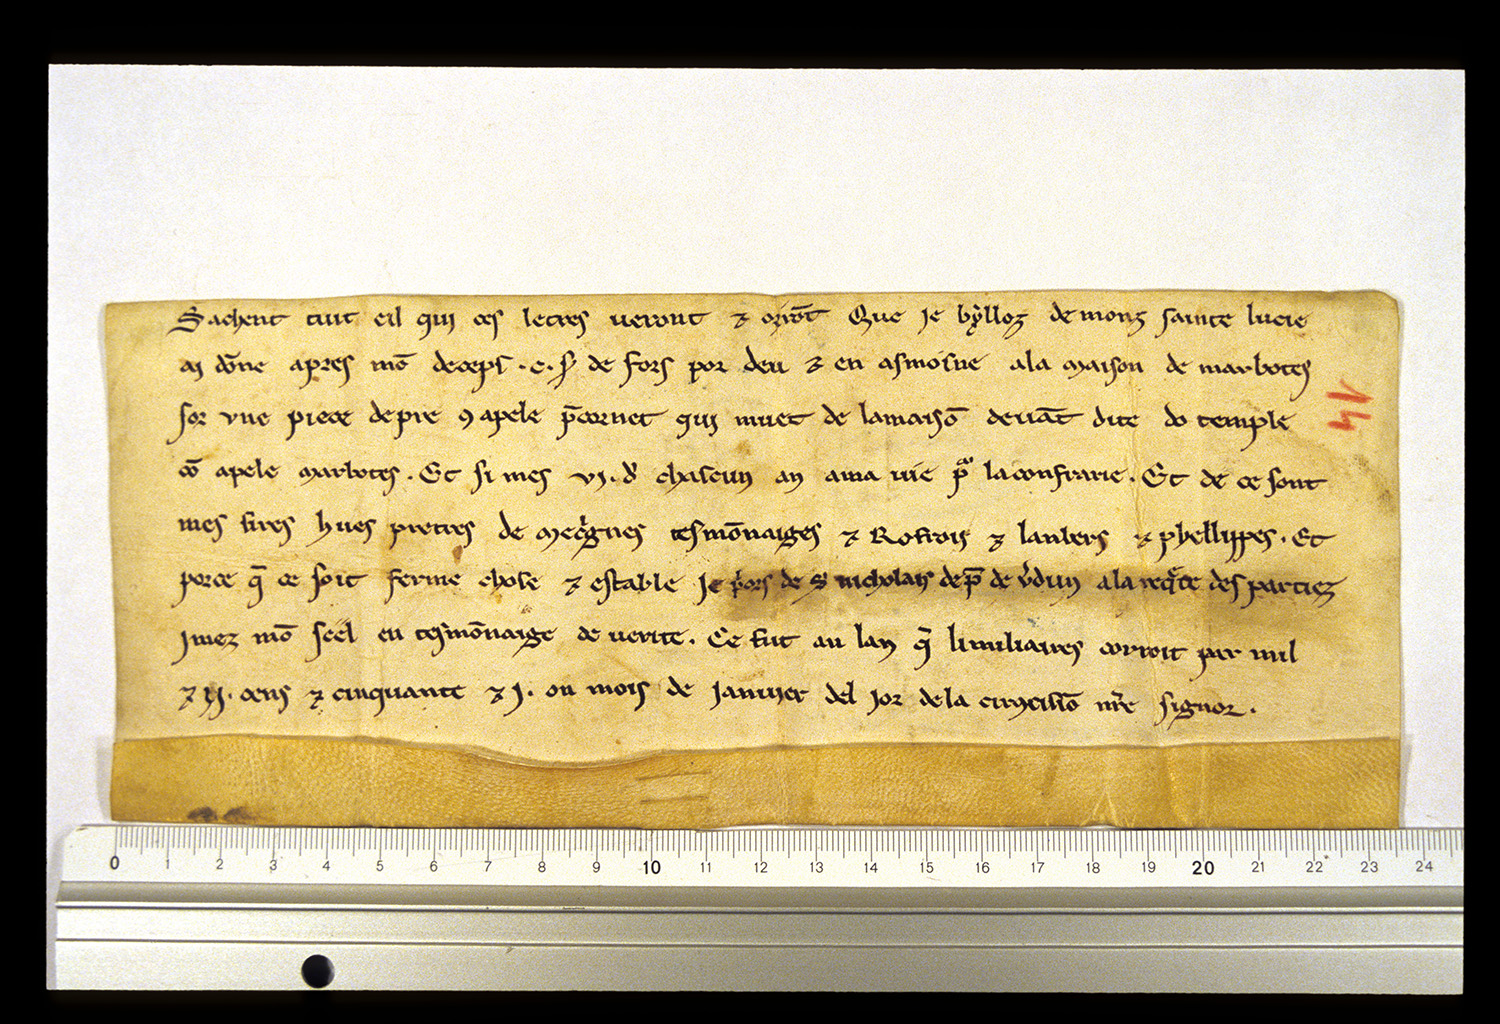 Sachent tuit cil qui ces letres ueront ⁊ orrōt Que Ie bylloz de monz sainte lucie
ai dōne apres mō deceps .c. s̄ de fors por deu ⁊ en asmosne a la maison de marbotes
sor vne piece de pre ꝯ apele p̄cornet qui muet de la maisō deuāt dite do temple
cō apele marbotes . Et si mes vj . d̄ chascun an a ma uie pͣ la confrarie . Et de ce sont
mes sires hues pretres de tesmōnaiges ⁊ Rofrois ⁊ lanbers ⁊ phellippes . Et
porce q̄ ce soit ferme chose ⁊ estable Ie p̍ors de S nicholais de p̄ de v̍dun a la reqͣte des partiez
I mez mō seel en tesmōnaige de uerite . Ce fut au lan q̄ li miliaires corroit par mil
⁊ ij . cens ⁊ cinquante ⁊ j . ou mois de Ianuier del Ior de la circūcisiō nr̄e signor .
0 1 2 3 4 5 6 7 8 9 10 11 12 13 14 15 16 17 18 19 20 21 22 23 24